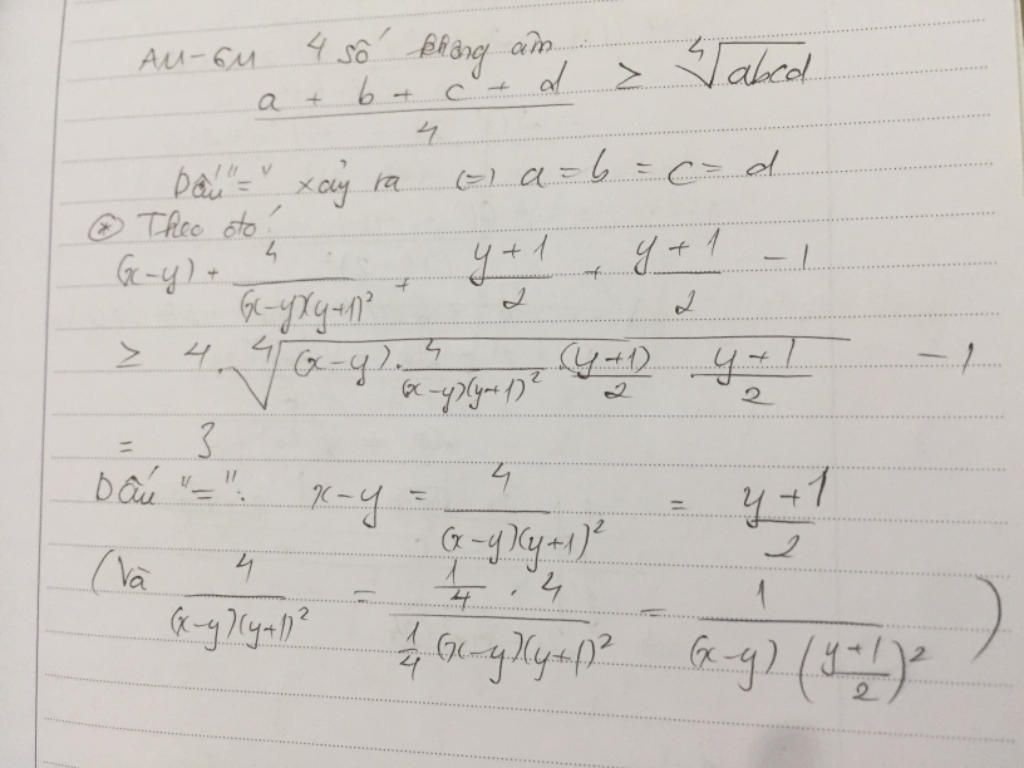 AM-GM 4 số không âm :
(a + b + c + d)/4 ≥ ∜(abcd)
Dấu "=" xảy ra (=) a = b = c = d
⊛ Theo đó
(x-y) + 4/((x-y)(y+1)²) + (y+1)/2 + (y+1)/2 - 1
≥ 4. ∜((x-y). 4/((x-y)(y+1)²) . (y+1)/2 (y+1)/2) - 1
= 3
Dấu "=": x-y = 4/((x-y)(y+1)²) = (y+1)/2
(Và 4/((x-y)(y+1)²) = (1/4 . 4)/(1/4 (x-y)(y+1)²) = 1/((x-y)((y+1)/2)²))